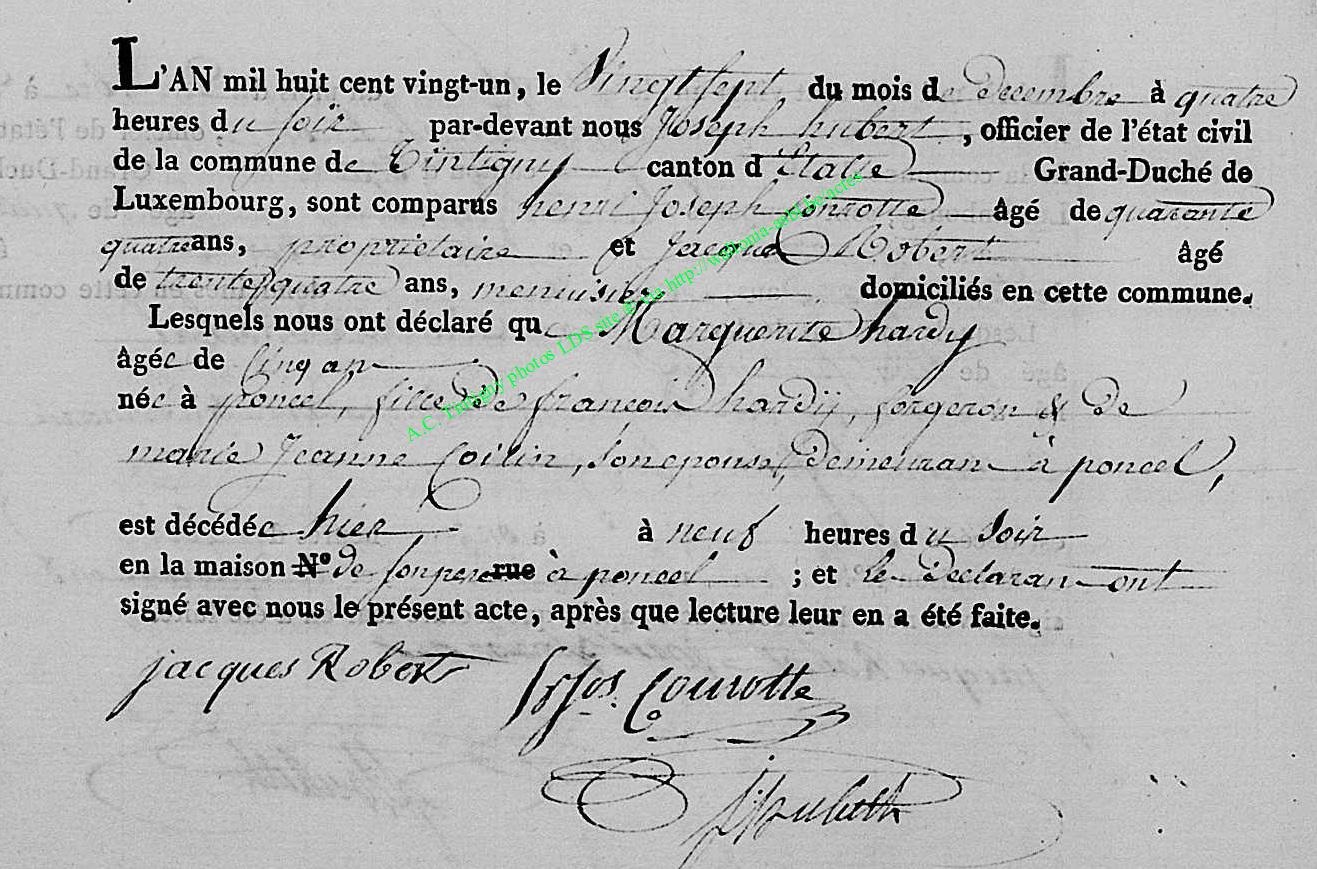 L'AN mil huit cent vingt-un, le Vingt sept du mois de decembre à quatre
heures du soir par-devant nous Joseph hubert, officier de l'état civil
de la commune de Tintigny canton d'Etalle Grand-Duché de
Luxembourg, sont comparus henri Joseph Courotte âgé de quarante
quatre ans, propriétaire et Jacque Robert âgé
de trente quatre ans, menuisier domiciliés en cette commune.
Lesquels nous ont déclaré que Marguerite hardy
âgée de cinq an
née à poncel, fille de françois hardy, forgeron & de
marie Jeanne son epouse, demeuran à poncel,
est décédée hier à neuf heures du soir
en la maison N° de son pere rue à poncel ; et le Declaran ont
signé avec nous le présent acte, après que lecture leur en a été faite.
jacques Robert
Jos. Courotte
A.C. Tintigny photos LDS site & via http://wallonia-asbl.be/actes